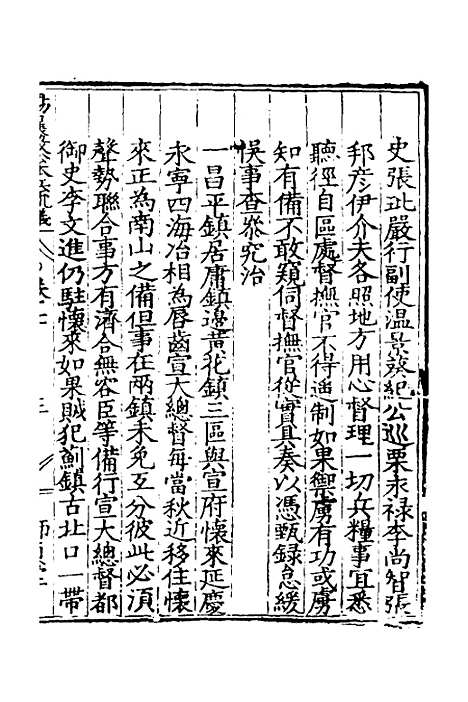 史張玭嚴行副使温景葵紀公巡栗永禄李尚智張
邦彦伊介夫各照地方用心督理一切兵糧事宜悉
聽徑自區處督撫官不得遥制如果禦虜有功或虜
知有備不敢窺伺督撫官從實具奏以憑甄録怠緩
悞事查叅究治
一昌平鎮居庸鎮邊黃花鎮三區與宣府懷來延慶
永寧四海冶相為唇齒宣大總督每當秋近移住懷
來正為南山之備但事在兩鎮未免互分彼此必須
聲勢聯合事方有濟合無容臣等備行宣大總督都
御史李文進仍駐懷來如果賊犯薊鎮古北口一帶